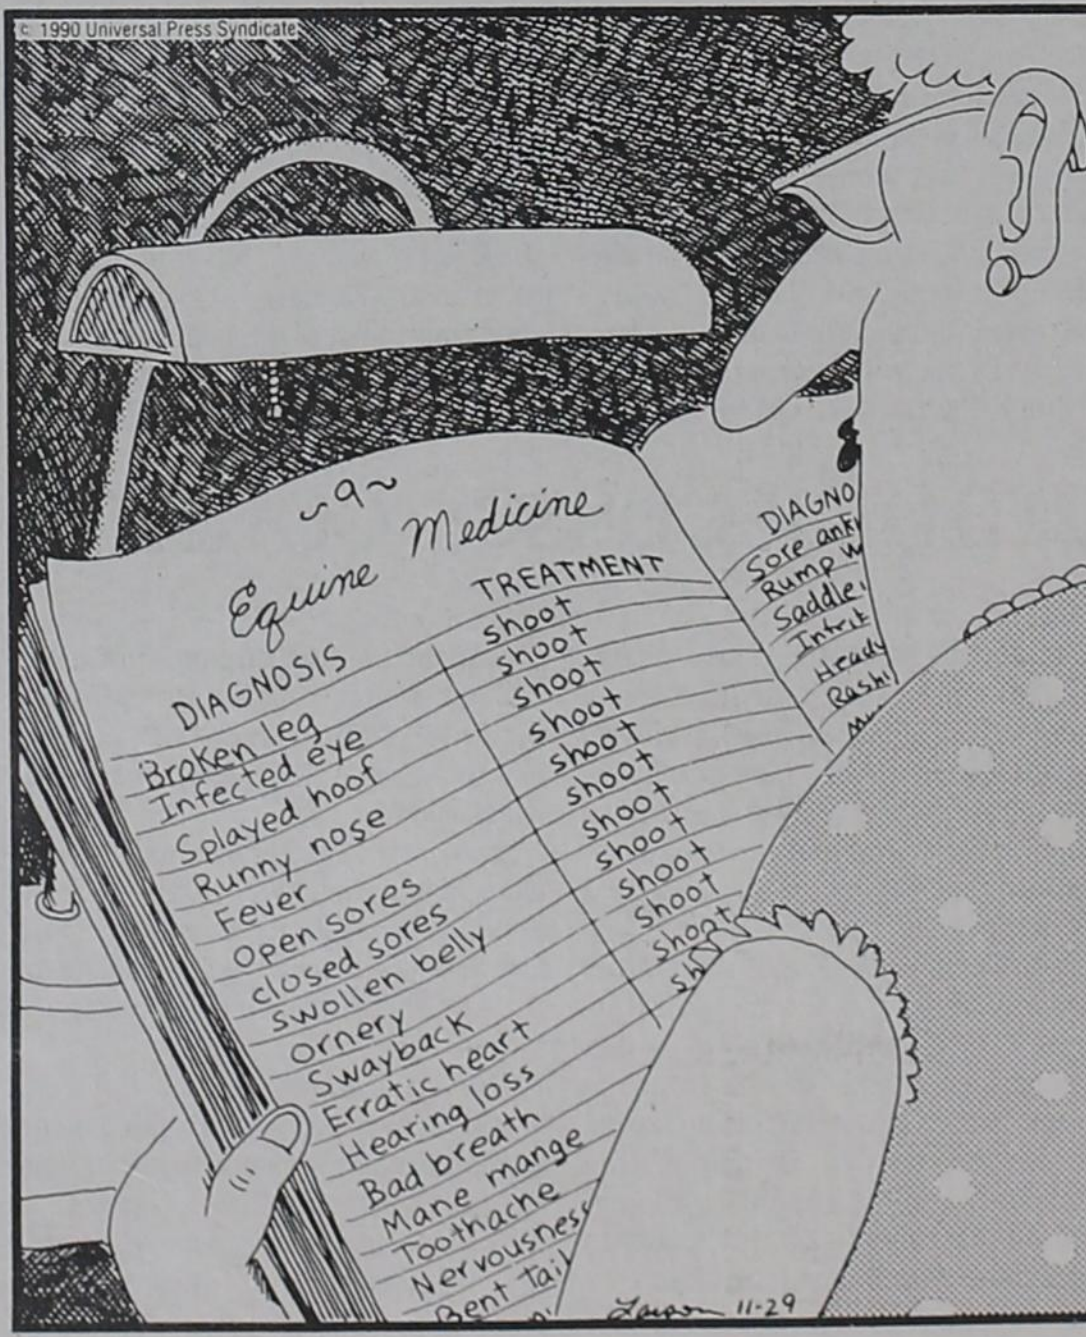 © 1990 Universal Press Syndicate
~9~
Equine Medicine
DIAGNOSIS TREATMENT
Broken leg shoot
Infected eye shoot
Splayed hoof shoot
Runny nose shoot
Fever shoot
Open sores shoot
closed sores shoot
swollen belly shoot
ornery shoot
Swayback shoot
Erratic heart shoot
Hearing loss sh
Bad breath
Mane mange
Toothache
Nervousness
Bent tail
DIAGNO
Sore ank
Rump w
Saddle
Larson 11-29